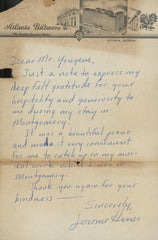 Atlanta Biltmore
ATLANTA, GEORGIA
Dear Mr. Yougene,
Just a note to express my
deep felt gratitude for your
hospitality and generosity to
me during my stay in
Montgomery.
It was a beautiful piano
and made it very convenient
for me to catch up on my mus-
ical work while I was in
Montgomery.
Thank you again for your
kindness —
Sincerely,
Jerome Hines